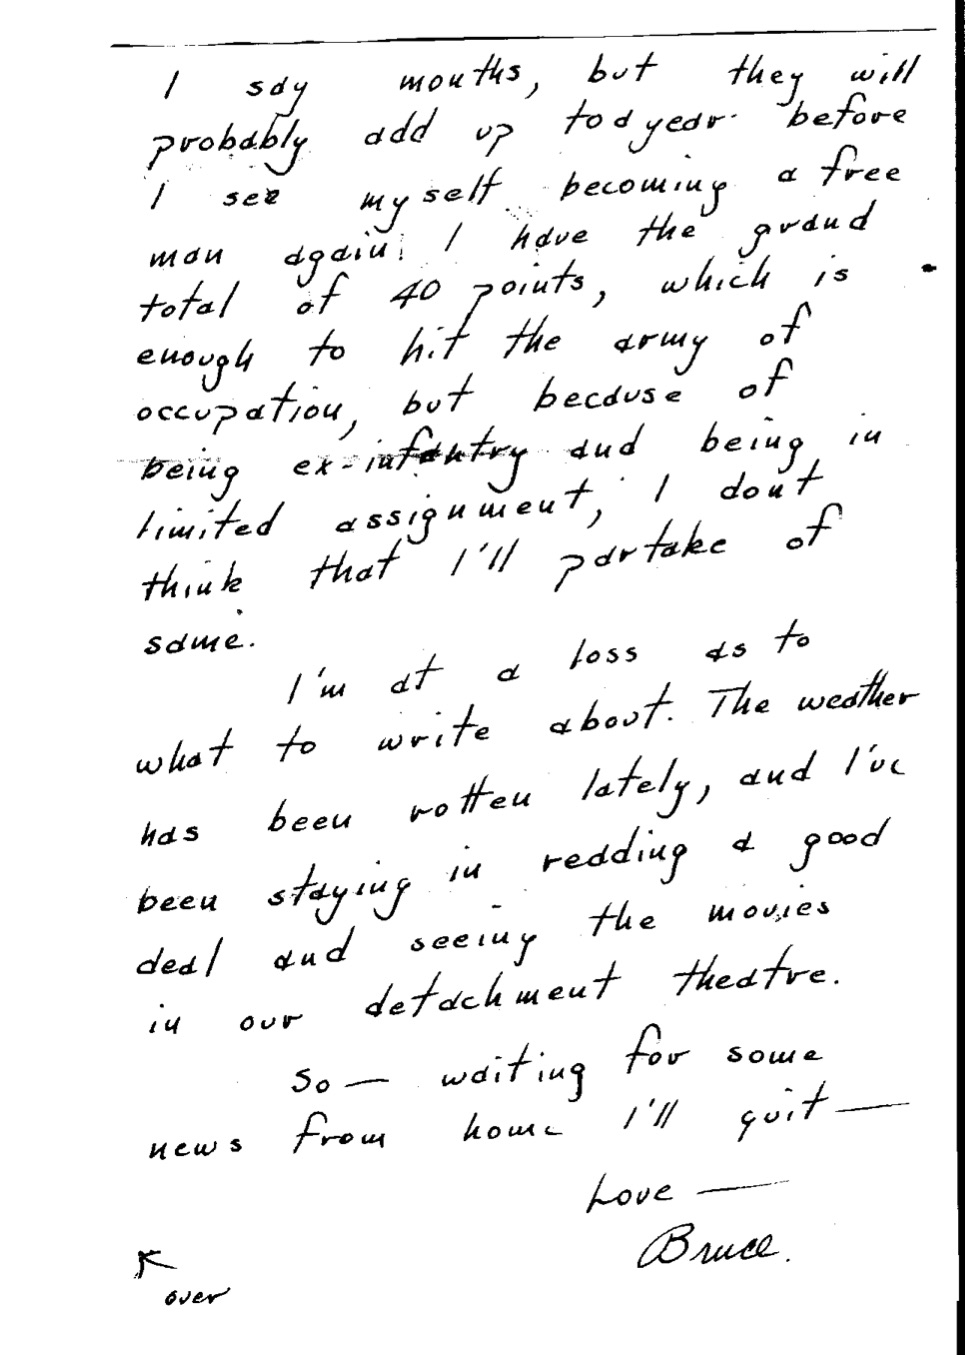 I say months, but they will
probably add up to a year before
I see myself becoming a free
man again. I have the grand
total of 40 points, which is
enough to hit the army of
occupation, but because of
being ex-infantry and being in
limited assignment, I dont
think that I'll partake of
same.
I'm at a loss as to
what to write about. The weather
has been rotten lately, and I've
been staying in reading a good
deal and seeing the movies
in our detachment theatre.
So — waiting for some
news from home I'll quit —
Love —
Bruce.
over